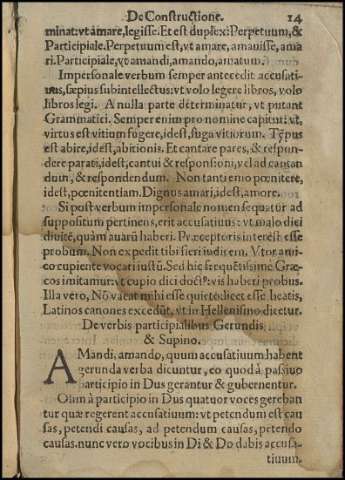 De Constructione. 14
minat: vt amare, legisse. Et est duplex: Perpetuum, &
Participiale. Perpetuum est, vt amare, amauisse, ama
ri. Participiale, vt amandi, amando, amatum.
Impersonale verbum semper antecedit accusati-
uus, sæpius subintellectus: vt volo legere libros, volo
libros legi. A nulla parte determinatur, vt putant
Grammatici. Semper enim pro nomine capitur: vt
virtus est vitium fugere, idest, fuga vitiorum. Tẽpus
est abire, idest, abitionis. Et cantare pares, & respon-
dere parati, idest, cantui & responsioni, vel ad cantan
dum, & respondendum. Non tanti emo pœnitere,
idest, pœnitentiam. Dignus amari, idest, amore.
Si post verbum impersonale nomen sequatur ad
suppositum pertinens, erit accusatiuus: vt malo dici
diuitẽ, quàm auarũ haberi. Præceptoris interest esse
probum. Non expedit tibi fieri iudicem. Vtor ami-
co cupiente vocari iustũ. Sed hic frequẽtissimè Græ-
cos imitamur: vt cupio dici doctꝰ: vis haberi probus.
Illa vero, Nõ vacat mihi esse quieto: licet esse beatis,
Latinos canones excedũt, vt in Hellenismo dicetur.
De verbis participialibus Gerundis
& Supino.
AMandi, amando, quum accusatiuum habent
gerunda verba dicuntur, eo quod à passiuo
participio in Dus gerantur & gubernentur.
Olim à participio in Dus quatuor voces gereban
tur quæ regerent accusatiuum: vt petendum est cau
sas, petendi causas, ad petendum causas, petendo
causas. nunc vero vocibus in Di & Do dabis accusa-
tiuum.